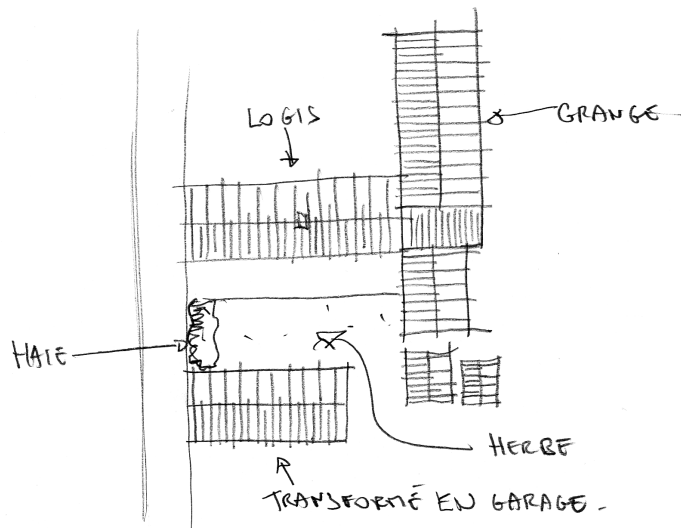 LOGIS
GRANGE
HAIE
HERBE
TRANSFORMÉ EN GARAGE.